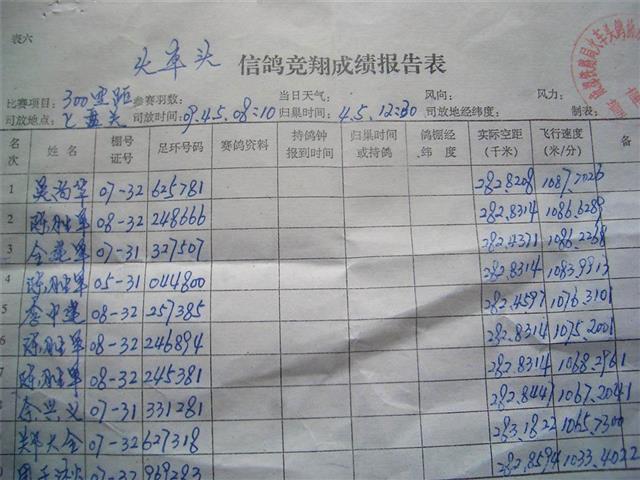 表六
火车头 信鸽竞翔成绩报告表
比赛项目: 300空距 参赛羽数: 当日天气: 风向: 风力:
司放地点: 七盘关 司放时间: 09.4.5.08:10 归巢时间: 4.5.12:30 司放地经纬度: 制表:
名次 姓名 棚号证号 足环号码 赛鸽资料 持鸽钟报到时间 归巢时间或持鸽 鸽棚经纬度 实际空距(千米) 飞行速度(米/分) 备
1 吴治华 07-32 625781 282.8208 1087.7026
2 陈胜军 08-32 248666 282.8314 1086.6289
3 07-31 327507 282.4371 1086.2268
4 陈胜军 05-31 044800 282.8314 1083.9913
5 08-32 257385 282.4597 1076.3101
6 陈胜军 08-32 246894 282.8314 1075.2001
陈胜军 08-32 245381 282.8314 1068.2961
秦兴义 07-31 331281 282.8441 1067.2041
郑大全 07-32 627318 283.1822 1065.7300
07-32 969283 282.8594 1033.4022